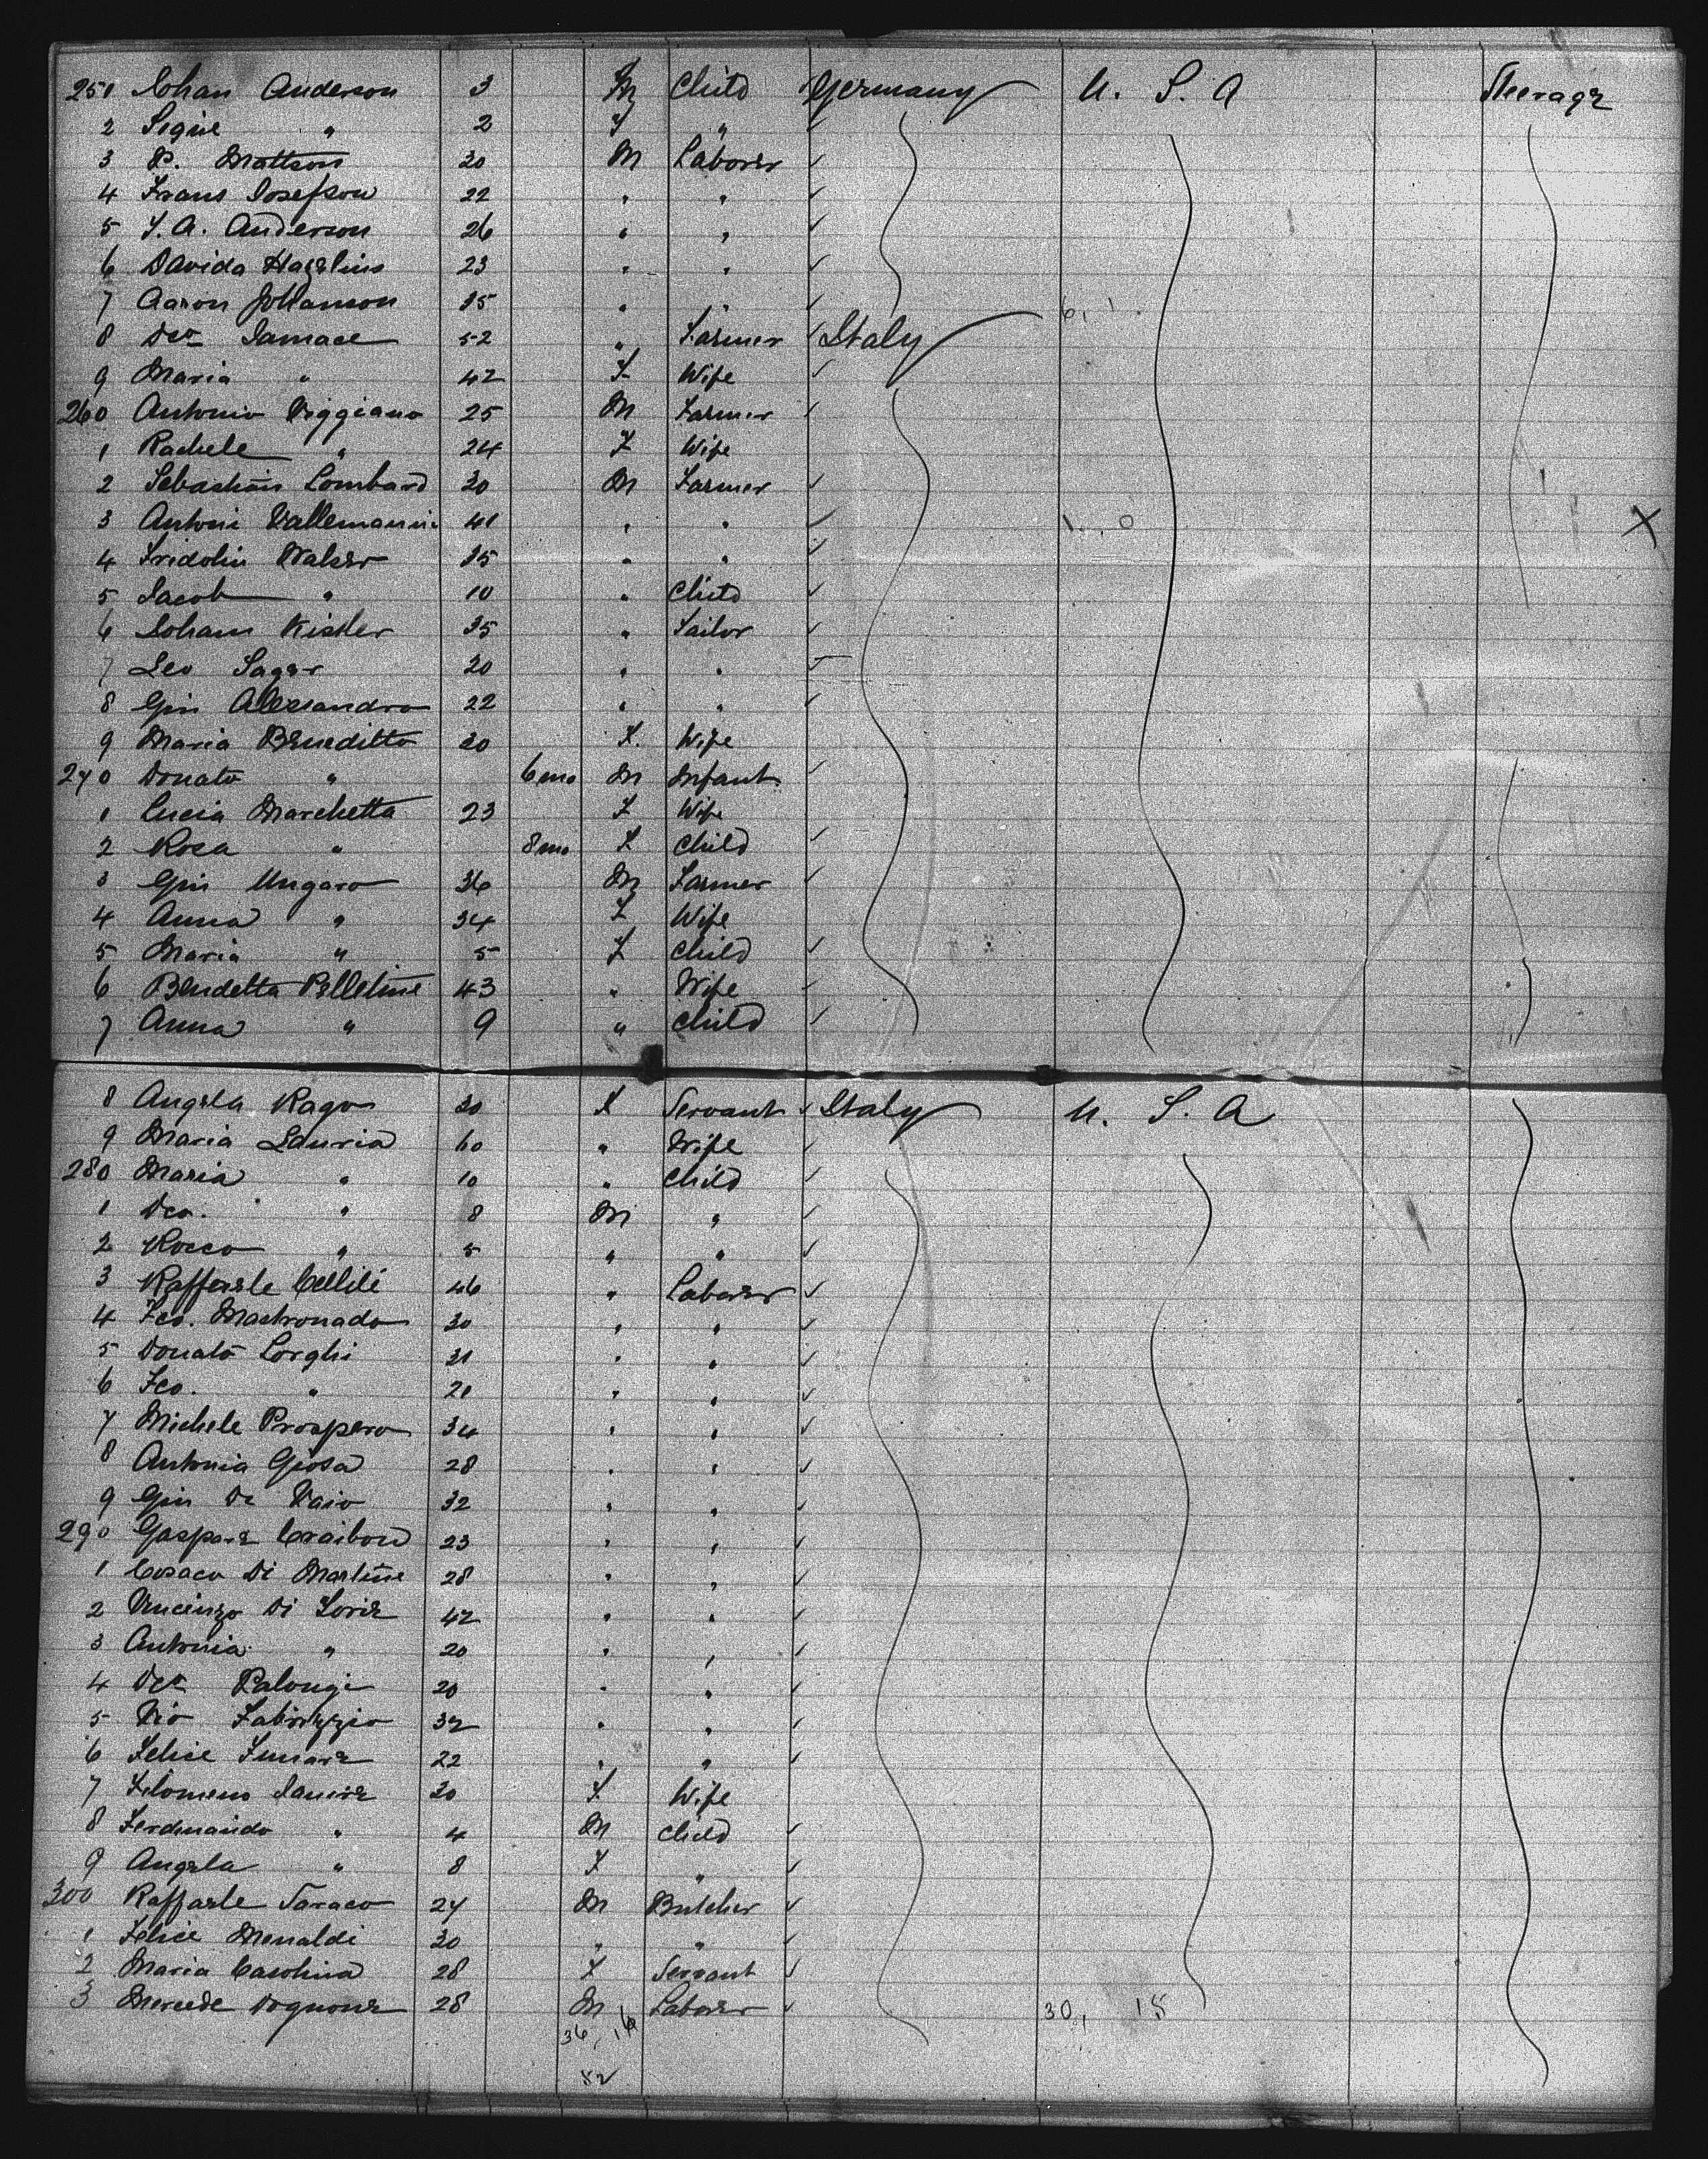 251 Johan Anderson 3 M Child Germany U. S. A Steerage
2 Signe " 2 F "
3 P. Mattson 30 M Laborer
4 Frans Josefson 22 " "
5 F. A. Anderson 26 " "
6 Davida Hazelius 23 " "
7 Aaron Johanson 25 " "
8 Dco Samace 52 " Farmer Italy
9 Maria " 42 F Wife
260 Antonio Viggiano 25 M Farmer
1 Rachele " 24 F Wife
2 Sebastian Lombard 30 M Farmer
3 Antoni 41 " " X
4 Fridolin Walser 35 " "
5 Jacob " 10 " Child
6 Johann Kistler 35 " Tailor
7 Leo Sager 20 " "
8 Gin Alessandro 22 " "
9 Maria Beneditto 30 F. Wife
270 Donato " 6 mo M Infant
1 Lucia Marchetta 23 F Wife
2 Rosa " 8 mo F Child
3 Gin Ungaro 36 M Farmer
4 Anna " 34 F Wife
5 Maria " 5 F Child
6 Bendetta Pelletine 43 " Wife
7 Anna " 9 " Child
8 Angela Rago 30 F Servant Italy U. S. A
9 Maria Lauria 60 " Wife
280 Maria " 10 " Child
1 Dco. " 8 M "
2 Rocco " 5 " "
3 Raffaele Cellili 46 " Laborer
4 Fco. Mastronado 30 " "
5 Donato Lorghi 31 " "
6 Fco. " 21 " "
7 Michele Prospero 34 " "
8 Antonia Giosa 28 " "
9 Gin De Vaio 32 " "
290 Gaspare 23 " "
1 Di Martine 28 " "
2 Vincenzo Di Iorie 42 " "
3 Antonia " 20 " "
4 Dco Palongi 20 " "
5 Vio Fabrizzio 32 " "
6 Felice 22 " "
7 Filomeno 30 F Wife
8 Ferdinando " 4 M Child
9 Angela " 8 F "
300 Raffaele Saraco 24 M Butcher
1 Felice Menaldi 30 " "
2 Maria Carolina 28 F Servant
3 Mercede Dognone 28 M Laborer 30, 18
36, 16
52